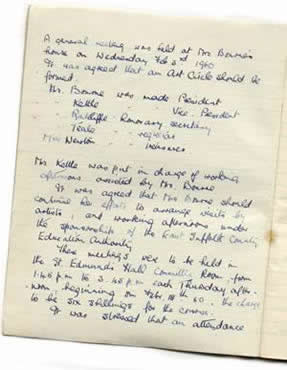 A general meeting was held at Mrs Bourne's
house on Wednesday Feb 3rd 1960
It was agreed that an Art Circle should be
formed.
Mrs. Bourne was made President
" Kettle " Vice-President
" Ratcliffe - Honorary secretary
" Teale "
Miss Newton " treasurer
Mrs. Kettle was put in charge of working
afternoons assisted by Mrs. Bourne
It was agreed that Mrs Bourne should
continue her efforts to arrange visits by
artists, and working afternoons under
the sponsorship of the East Suffolk County
Education Authority
These meetings were to be held in
the St. Edmunds Hall Committee Room from
1.45 p.m to 3.45 p.m each Thursday after-
noon, beginning on Feb 18th 60 - the charge
to be six shillings for the course.
It was stressed that an attendance